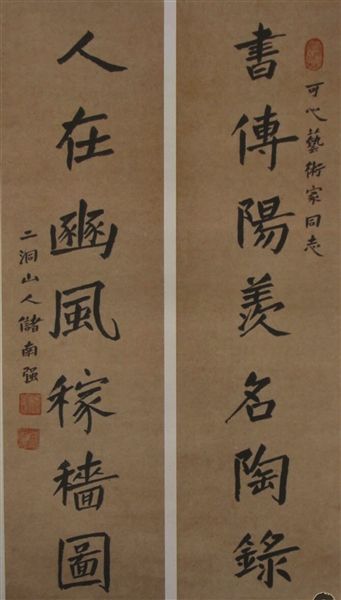 可心藝術家同志
書傳陽羨名陶錄
人在豳風稼穡圖
二洞山人儲南强